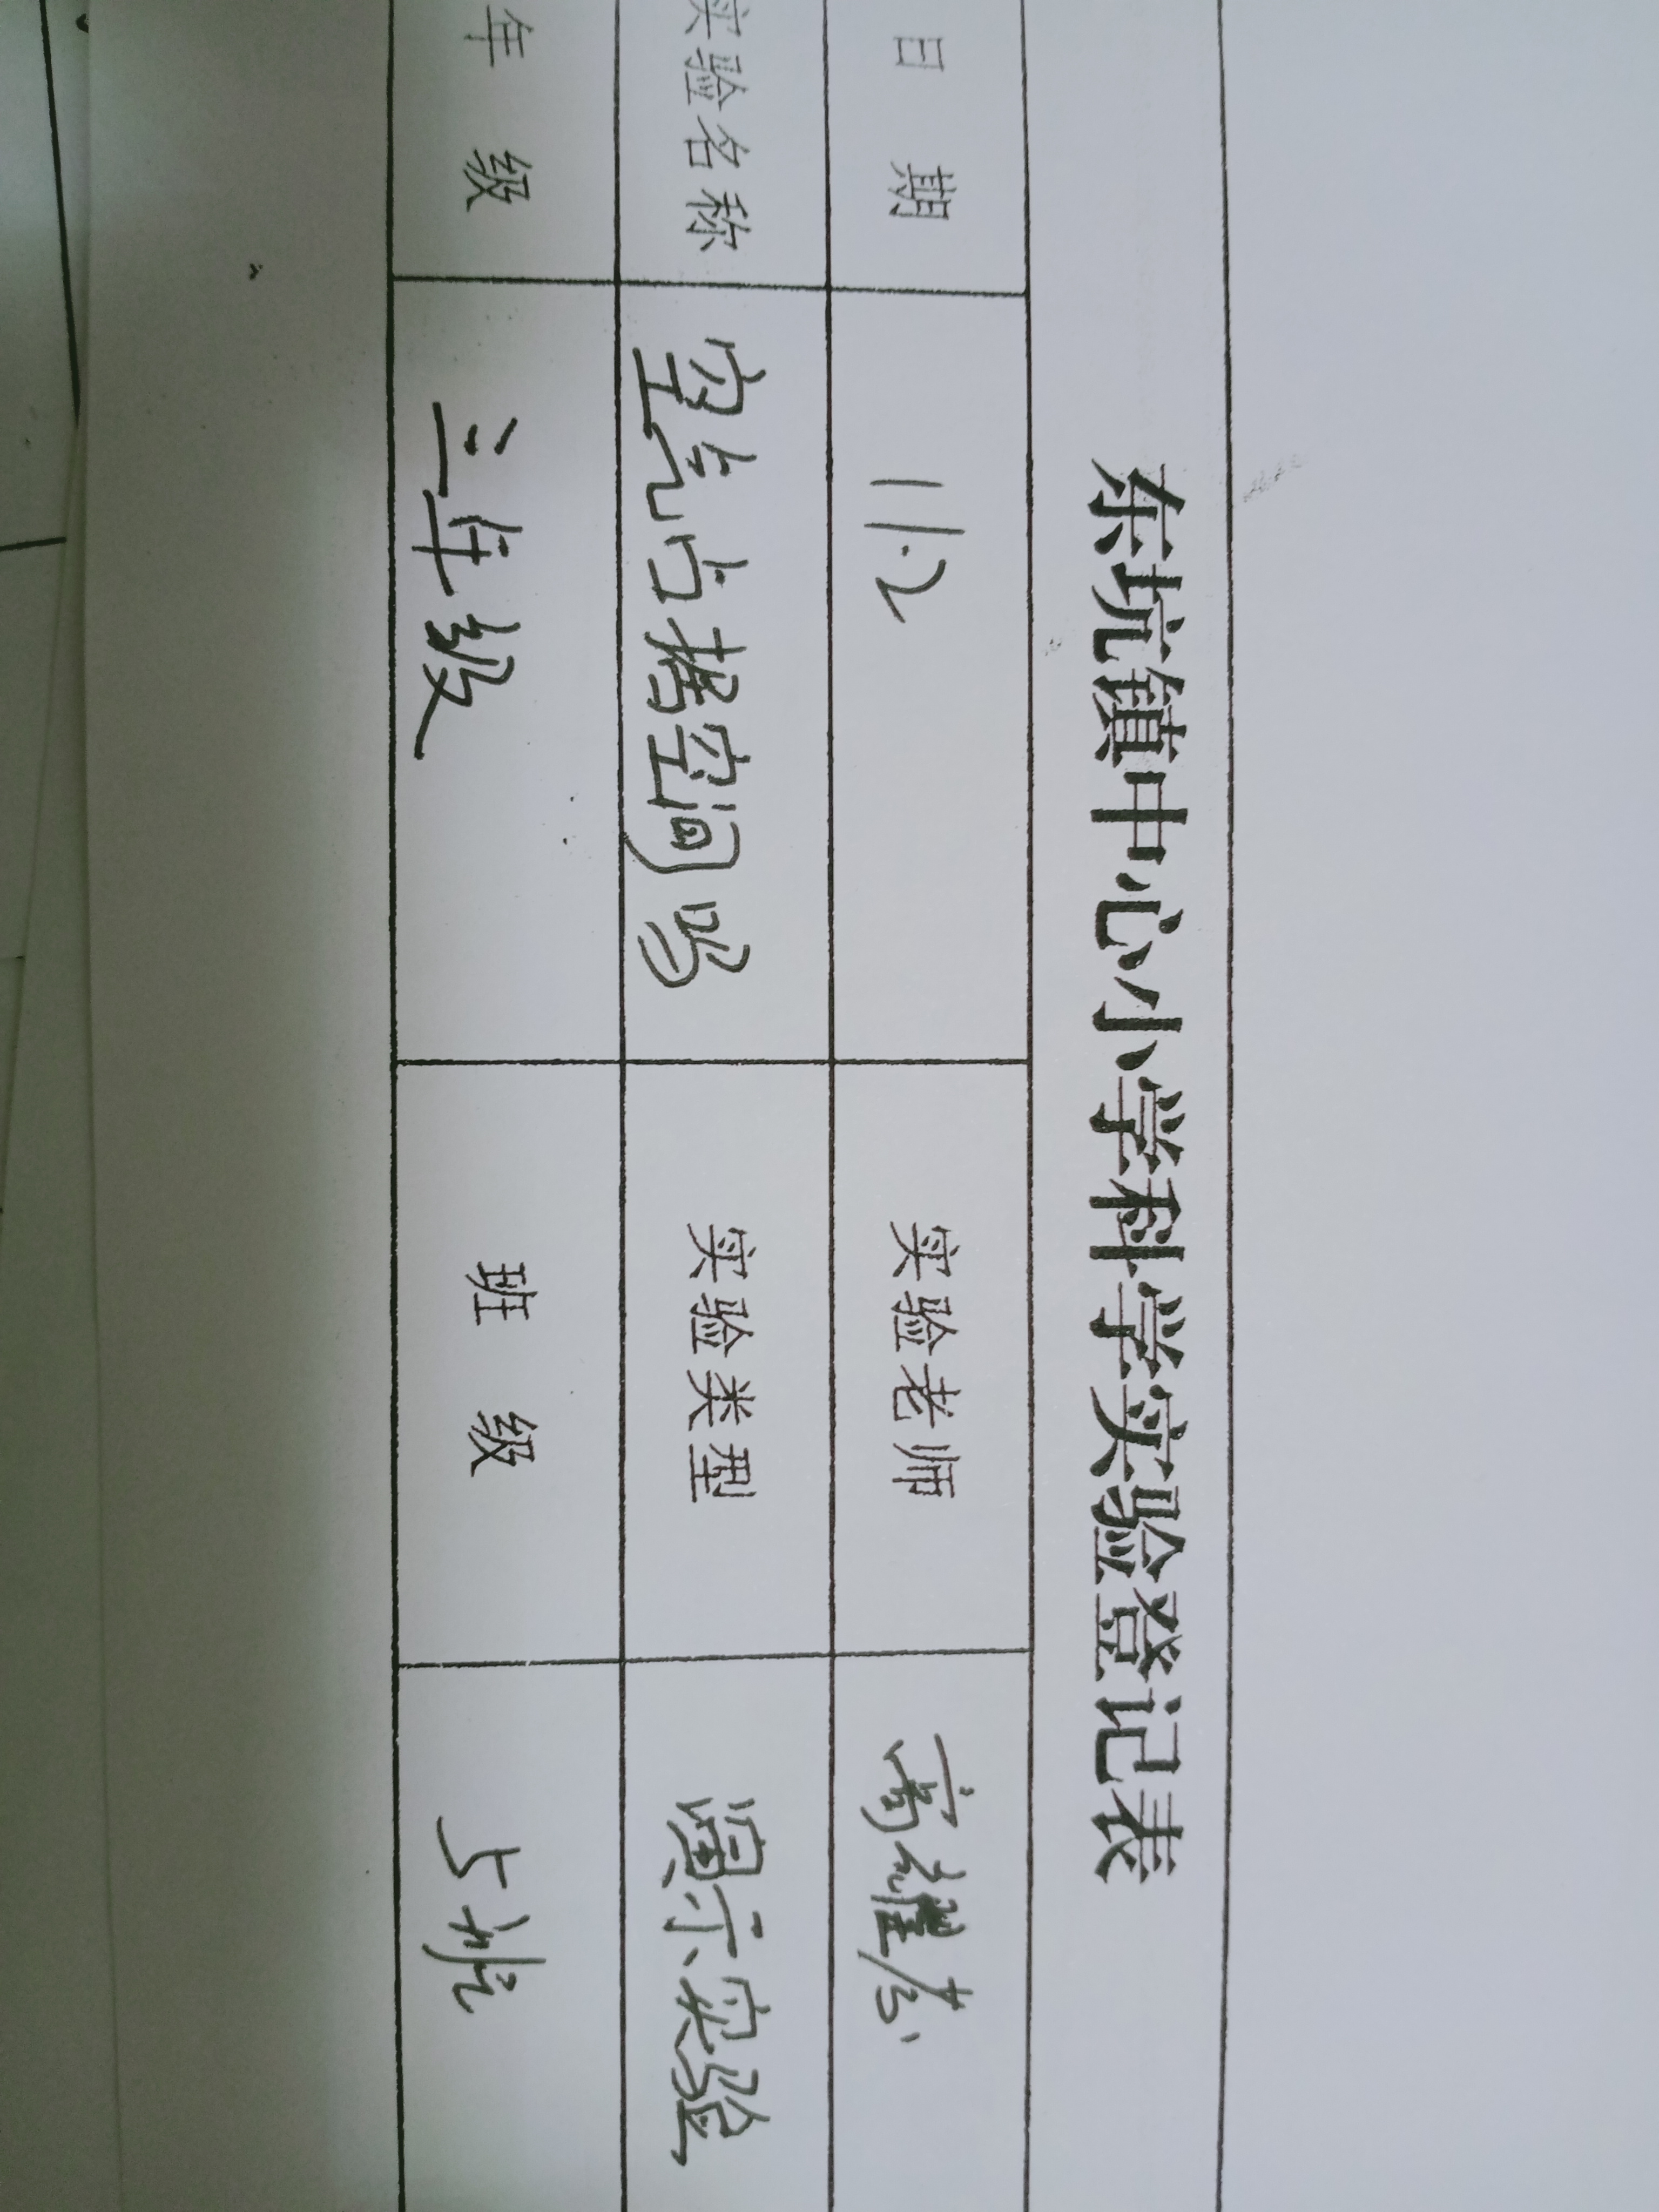 东坑镇中心小学科学实验登记表
日 期 11.2 实验老师
实验名称 空气占据空间吗 实验类型 演示实验
年 级 三年级 班 级 5班